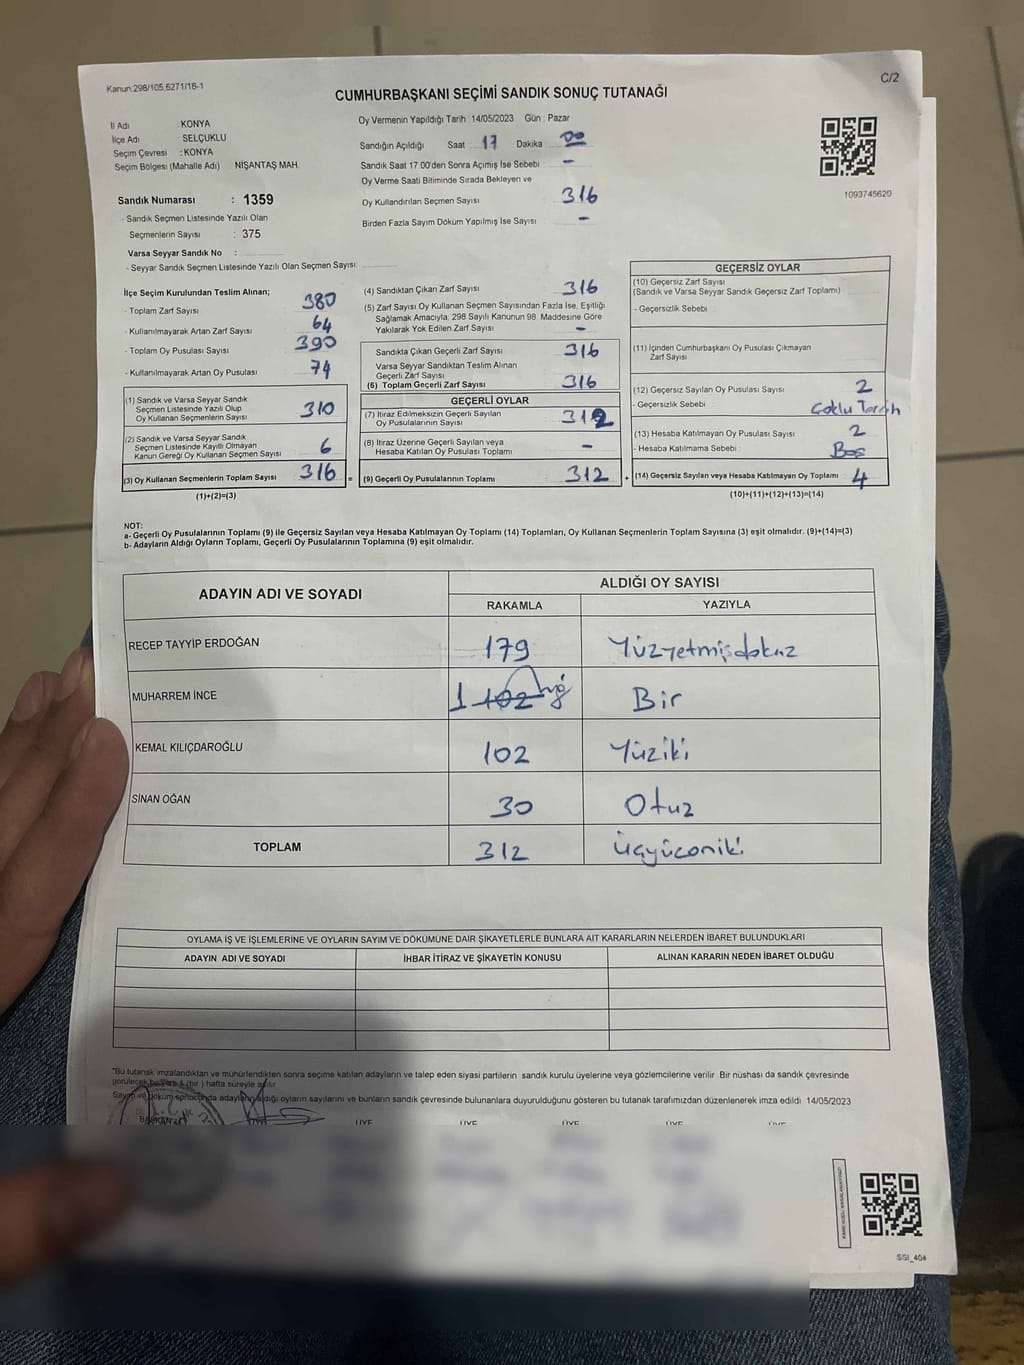 Kanun:298/105,6271/16-1
C/2
CUMHURBAŞKANI SEÇİMİ SANDIK SONUÇ TUTANAĞI
İl Adı : KONYA
İlçe Adı : SELÇUKLU
Seçim Çevresi : KONYA
Seçim Bölgesi (Mahalle Adı) NİŞANTAŞ MAH.
Sandık Numarası : 1359
- Sandık Seçmen Listesinde Yazılı Olan
Seçmenlerin Sayısı : 375
Varsa Seyyar Sandık No :
- Seyyar Sandık Seçmen Listesinde Yazılı Olan Seçmen Sayısı:
Oy Vermenin Yapıldığı Tarih 14/05/2023 Gün : Pazar
Sandığın Açıldığı Saat 17 Dakika 00
Sandık Saat 17:00'den Sonra Açımış İse Sebebi -
Oy Verme Saati Bitiminde Sırada Bekleyen ve
Oy Kullandırılan Seçmen Sayısı 316
Birden Fazla Sayım Döküm Yapılmış İse Sayısı -
1093745620
İlçe Seçim Kurulundan Teslim Alınan;
- Toplam Zarf Sayısı 380
- Kullanılmayarak Artan Zarf Sayısı 64
- Toplam Oy Pusulası Sayısı 390
- Kullanılmayarak Artan Oy Pusulası 74
(1) Sandık ve Varsa Seyyar Sandık
Seçmen Listesinde Yazılı Olup
Oy Kullanan Seçmenlerin Sayısı 310
(2) Sandık ve Varsa Seyyar Sandık
Seçmen Listesinde Kayıtlı Olmayan
Kanun Gereği Oy Kullanan Seçmen Sayısı 6
(3) Oy Kullanan Seçmenlerin Toplam Sayısı 316 =
(1)+(2)=(3)
(4) Sandıktan Çıkan Zarf Sayısı 316
(5) Zarf Sayısı Oy Kullanan Seçmen Sayısından Fazla İse, Eşitliği
Sağlamak Amacıyla, 298 Sayılı Kanunun 98. Maddesine Göre
Yakılarak Yok Edilen Zarf Sayısı -
Sandıkta Çıkan Geçerli Zarf Sayısı 316
Varsa Seyyar Sandıktan Teslim Alınan
Geçerli Zarf Sayısı
(6) Toplam Geçerli Zarf Sayısı 316
GEÇERLİ OYLAR
(7) İtiraz Edilmeksizin Geçerli Sayılan
Oy Pusulalarının Sayısı 312
(8) İtiraz Üzerine Geçerli Sayılan veya
Hesaba Katılan Oy Pusulası Toplamı -
(9) Geçerli Oy Pusulalarının Toplamı 312 +
GEÇERSİZ OYLAR
(10) Geçersiz Zarf Sayısı
(Sandık ve Varsa Seyyar Sandık Geçersiz Zarf Toplamı)
- Geçersizlik Sebebi
(11) İçinden Cumhurbaşkanı Oy Pusulası Çıkmayan
Zarf Sayısı
(12) Geçersiz Sayılan Oy Pusulası Sayısı 2
- Geçersizlik Sebebi Çoklu Tercih
(13) Hesaba Katılmayan Oy Pusulası Sayısı 2
- Hesaba Katılmama Sebebi : Boş
(14) Geçersiz Sayılan veya Hesaba Katılmayan Oy Toplamı 4
(10)+(11)+(12)+(13)=(14)
NOT:
a- Geçerli Oy Pusulalarının Toplamı (9) ile Geçersiz Sayılan veya Hesaba Katılmayan Oy Toplamı (14) Toplamları, Oy Kullanan Seçmenlerin Toplam Sayısına (3) eşit olmalıdır. (9)+(14)=(3)
b- Adayların Aldığı Oyların Toplamı, Geçerli Oy Pusulalarının Toplamına (9) eşit olmalıdır.
ADAYIN ADI VE SOYADI ALDIĞI OY SAYISI
RAKAMLA YAZIYLA
RECEP TAYYİP ERDOĞAN 179 Yüzyetmişdokuz
MUHARREM İNCE 1 102 Bir
KEMAL KILIÇDAROĞLU 102 Yüziki
SİNAN OĞAN 30 Otuz
TOPLAM 312 Üçyüzoniki
OYLAMA İŞ VE İŞLEMLERİNE VE OYLARIN SAYIM VE DÖKÜMÜNE DAİR ŞİKAYETLERLE BUNLARA AİT KARARLARIN NELERDEN İBARET BULUNDUKLARI
ADAYIN ADI VE SOYADI İHBAR İTİRAZ VE ŞİKAYETİN KONUSU ALINAN KARARIN NEDEN İBARET OLDUĞU
"Bu tutanak imzalandıktan ve mühürlendikten sonra seçime katılan adayların ve talep eden siyasi partilerin sandık kurulu üyelerine veya gözlemcilerine verilir Bir nüshası da sandık çevresinde
görülecek bir yere 1 (bir ) hafta süreyle asılır
Sayım ve döküm sonucunda adayların aldığı oyların sayılarını ve bunların sandık çevresinde bulunanlara duyurulduğunu gösteren bu tutanak tarafımızdan düzenlenerek imza edildi. 14/05/2023
BAŞKAN ÜYE ÜYE ÜYE ÜYE ÜYE
SSI_404